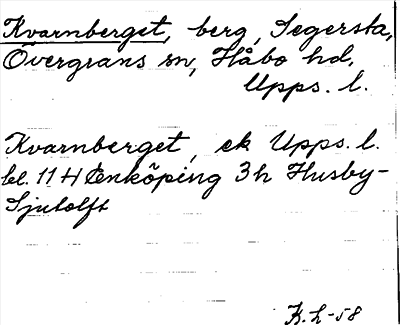 Kvarnberget, berg, Segersta,
Övergrans sn, Håbo hd,
Upps. l.
Kvarnberget, ek Upps. l.
bl. 11 H Enköping 3h Husby-
Sjutolft
K. L-58